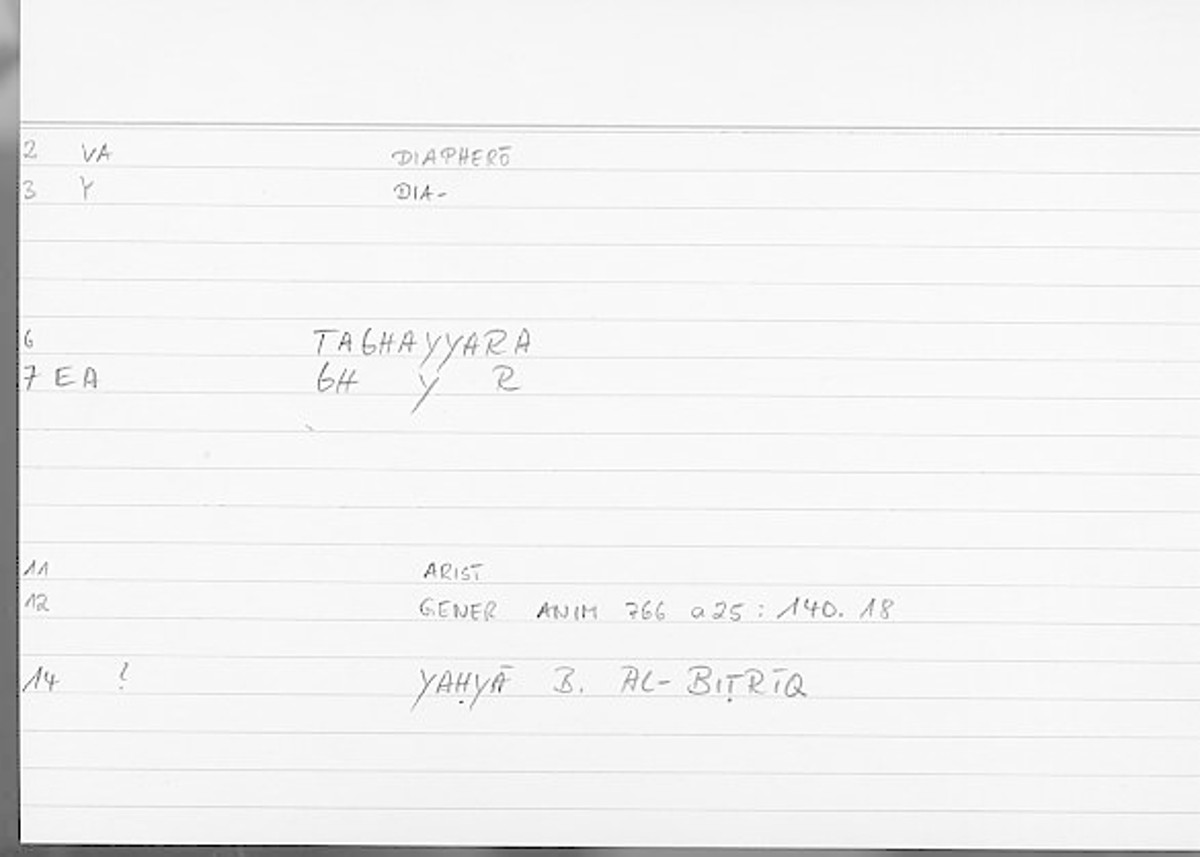 2 VA DIAPHERŌ
3 Y DIA-
6 TAGHAYYARA
7 EA GH Y R
11 ARIST
12 GENER ANIM 766 a25 : 140. 18
14 ? YAḤYĀ B. AL-BIṬRĪQ